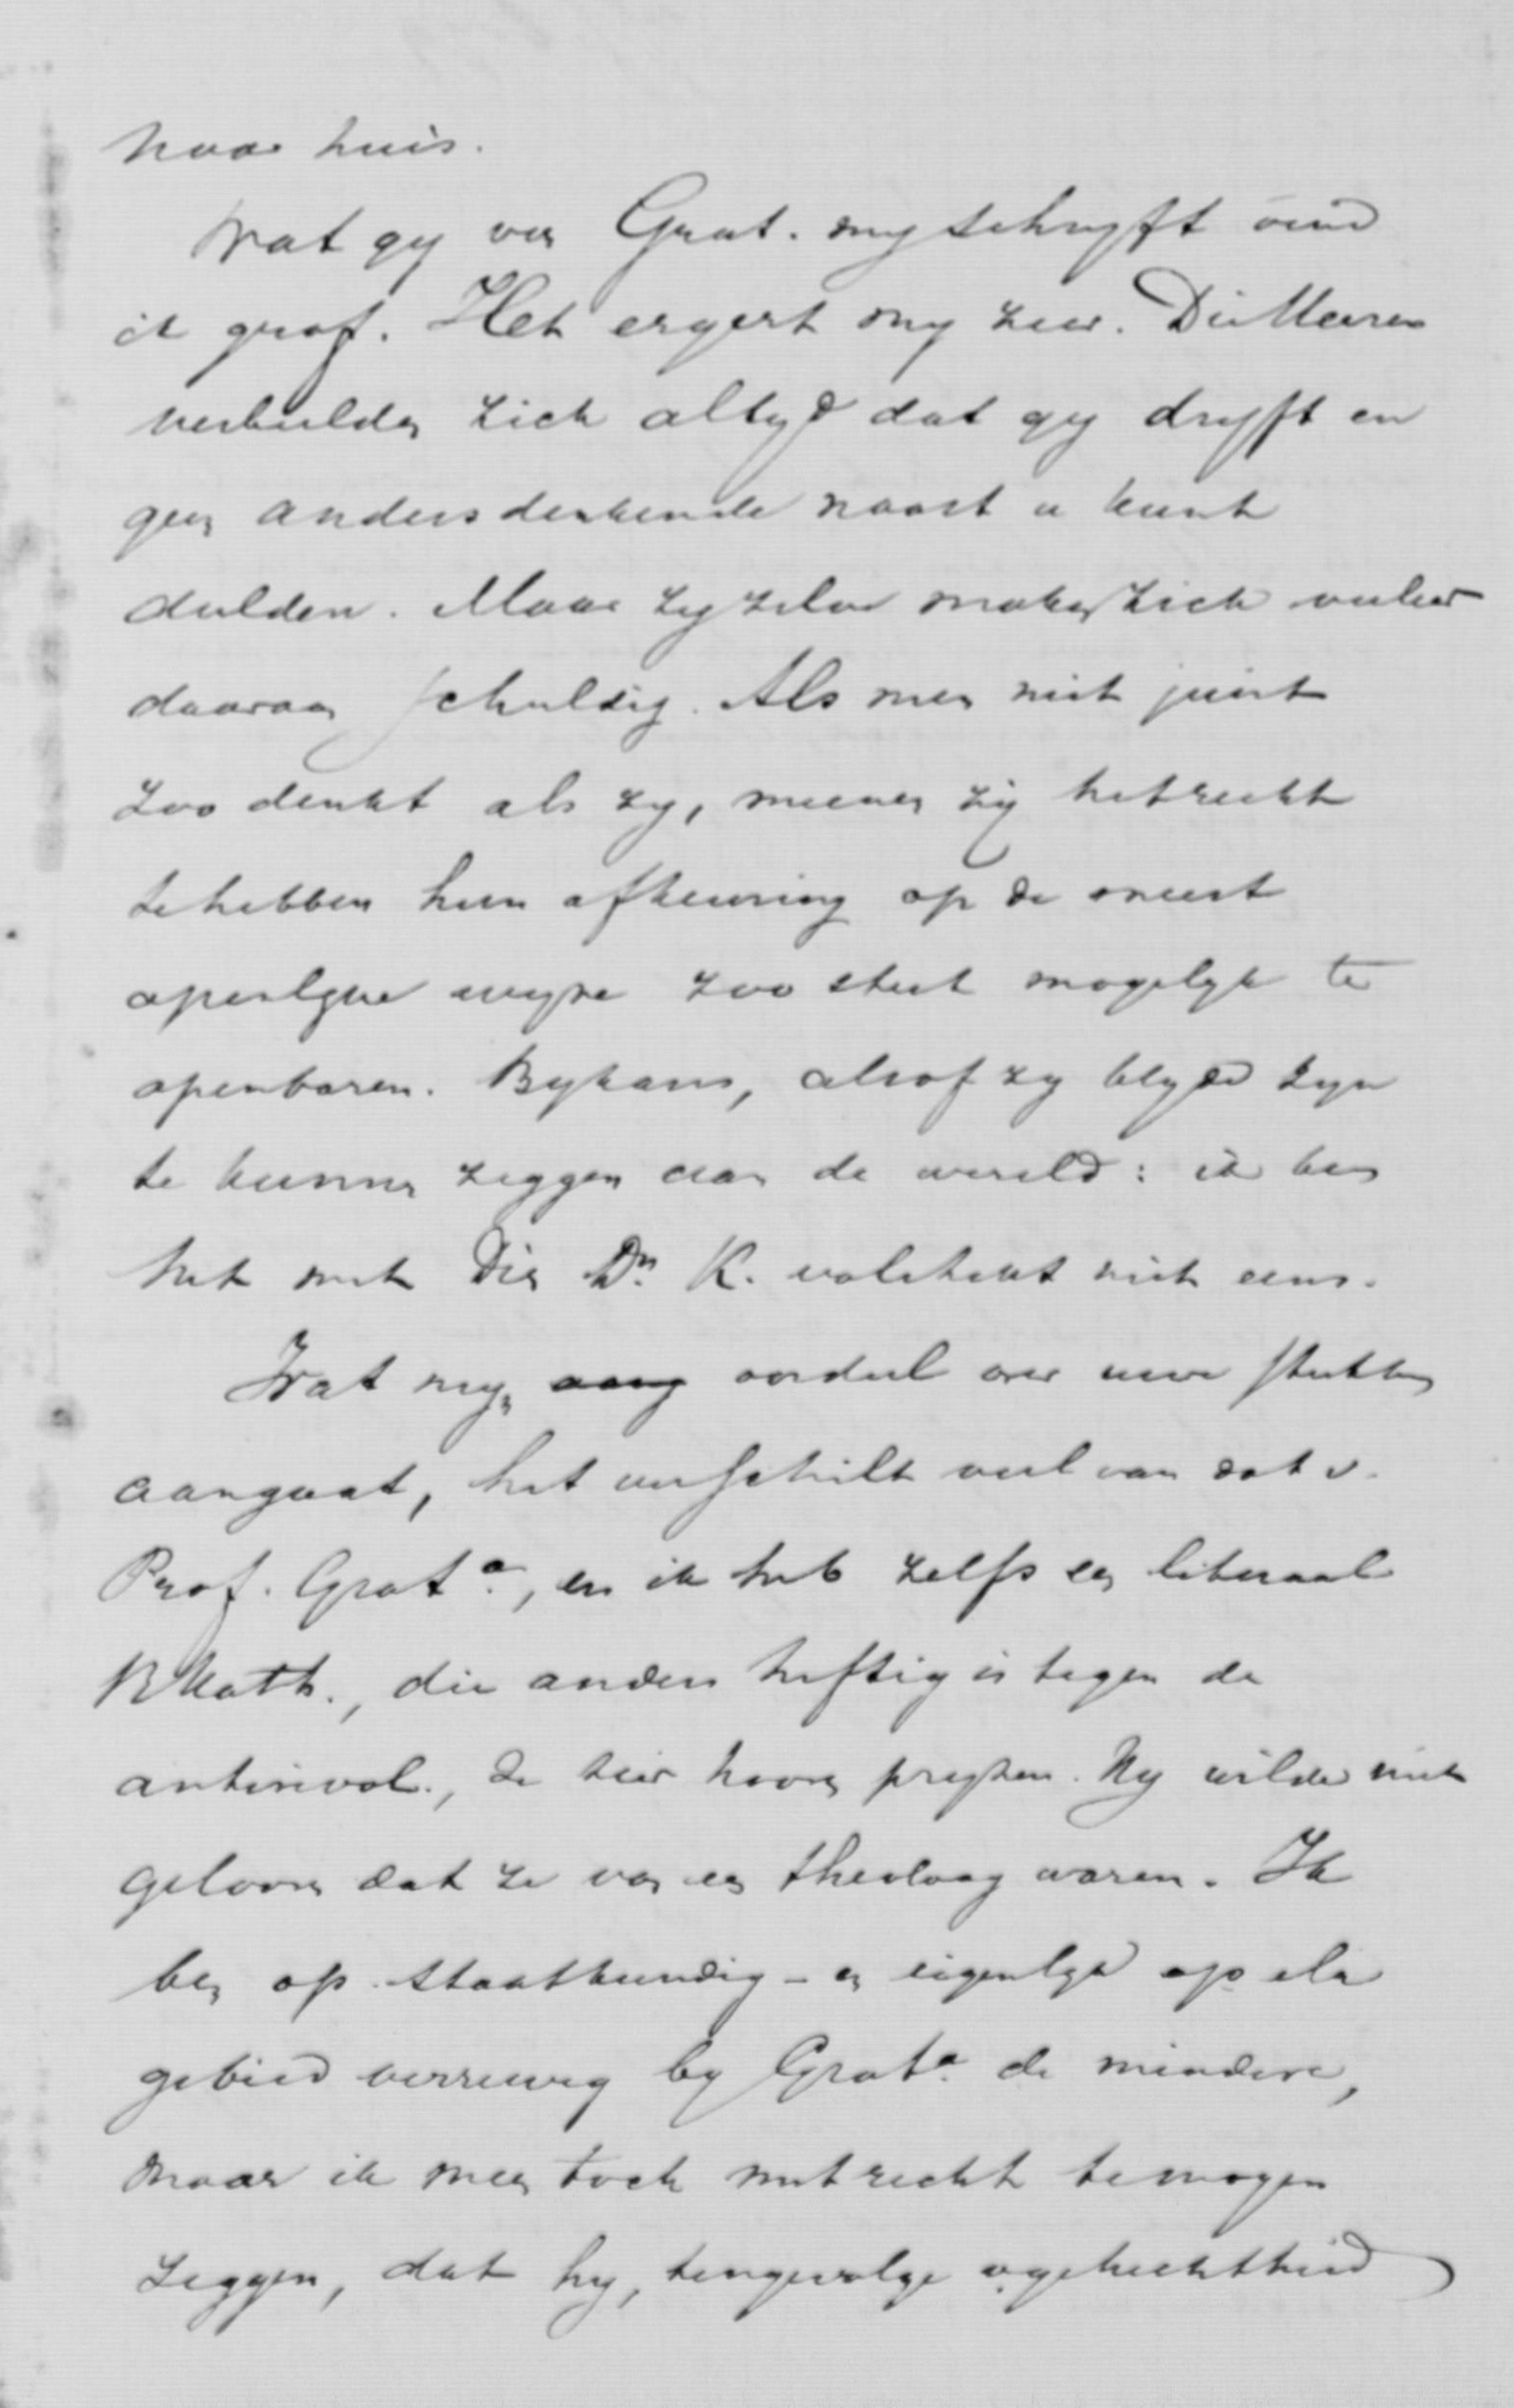 naar huis.
Wat gy van Grat. my schryft vind
ik grof. Het ergert my zeer. Die Heeren
verbeelden zich altyd dat gy dryft en
geen andersdenkende naast u kunt
dulden. Maar zy zelve maken zich veeleer
daaraan schuldig. Als men niet juist
zoo denkt als zy, meenen zy het recht
te hebben hun afkeuring op de meest
openlyke wyze zoo sterk mogelyk te
openbaren. Bykans, alsof zy blyde zyn
te kunnen zeggen aan de wereld: ik ben
het met dien Dr. K. volstrekt niet eens.
Wat myn aang oordeel over uwe stukken
aangaat, het verschilt veel van dat v.
Prof. Grata., en ik heb zelfs een liberaal
R Kath., die anders heftig is tegen de
antirevol., ze zeer hooren pryzen. Hy wilde niet
gelooven dat ze van een theoloog waren. Ik
ben op staatkundig - en eigenlyk op elk
gebied verreweg by Grata. de mindere,
maar ik meen toch met recht te mogen
zeggen, dat hy, tengevolge v. gehechtheid